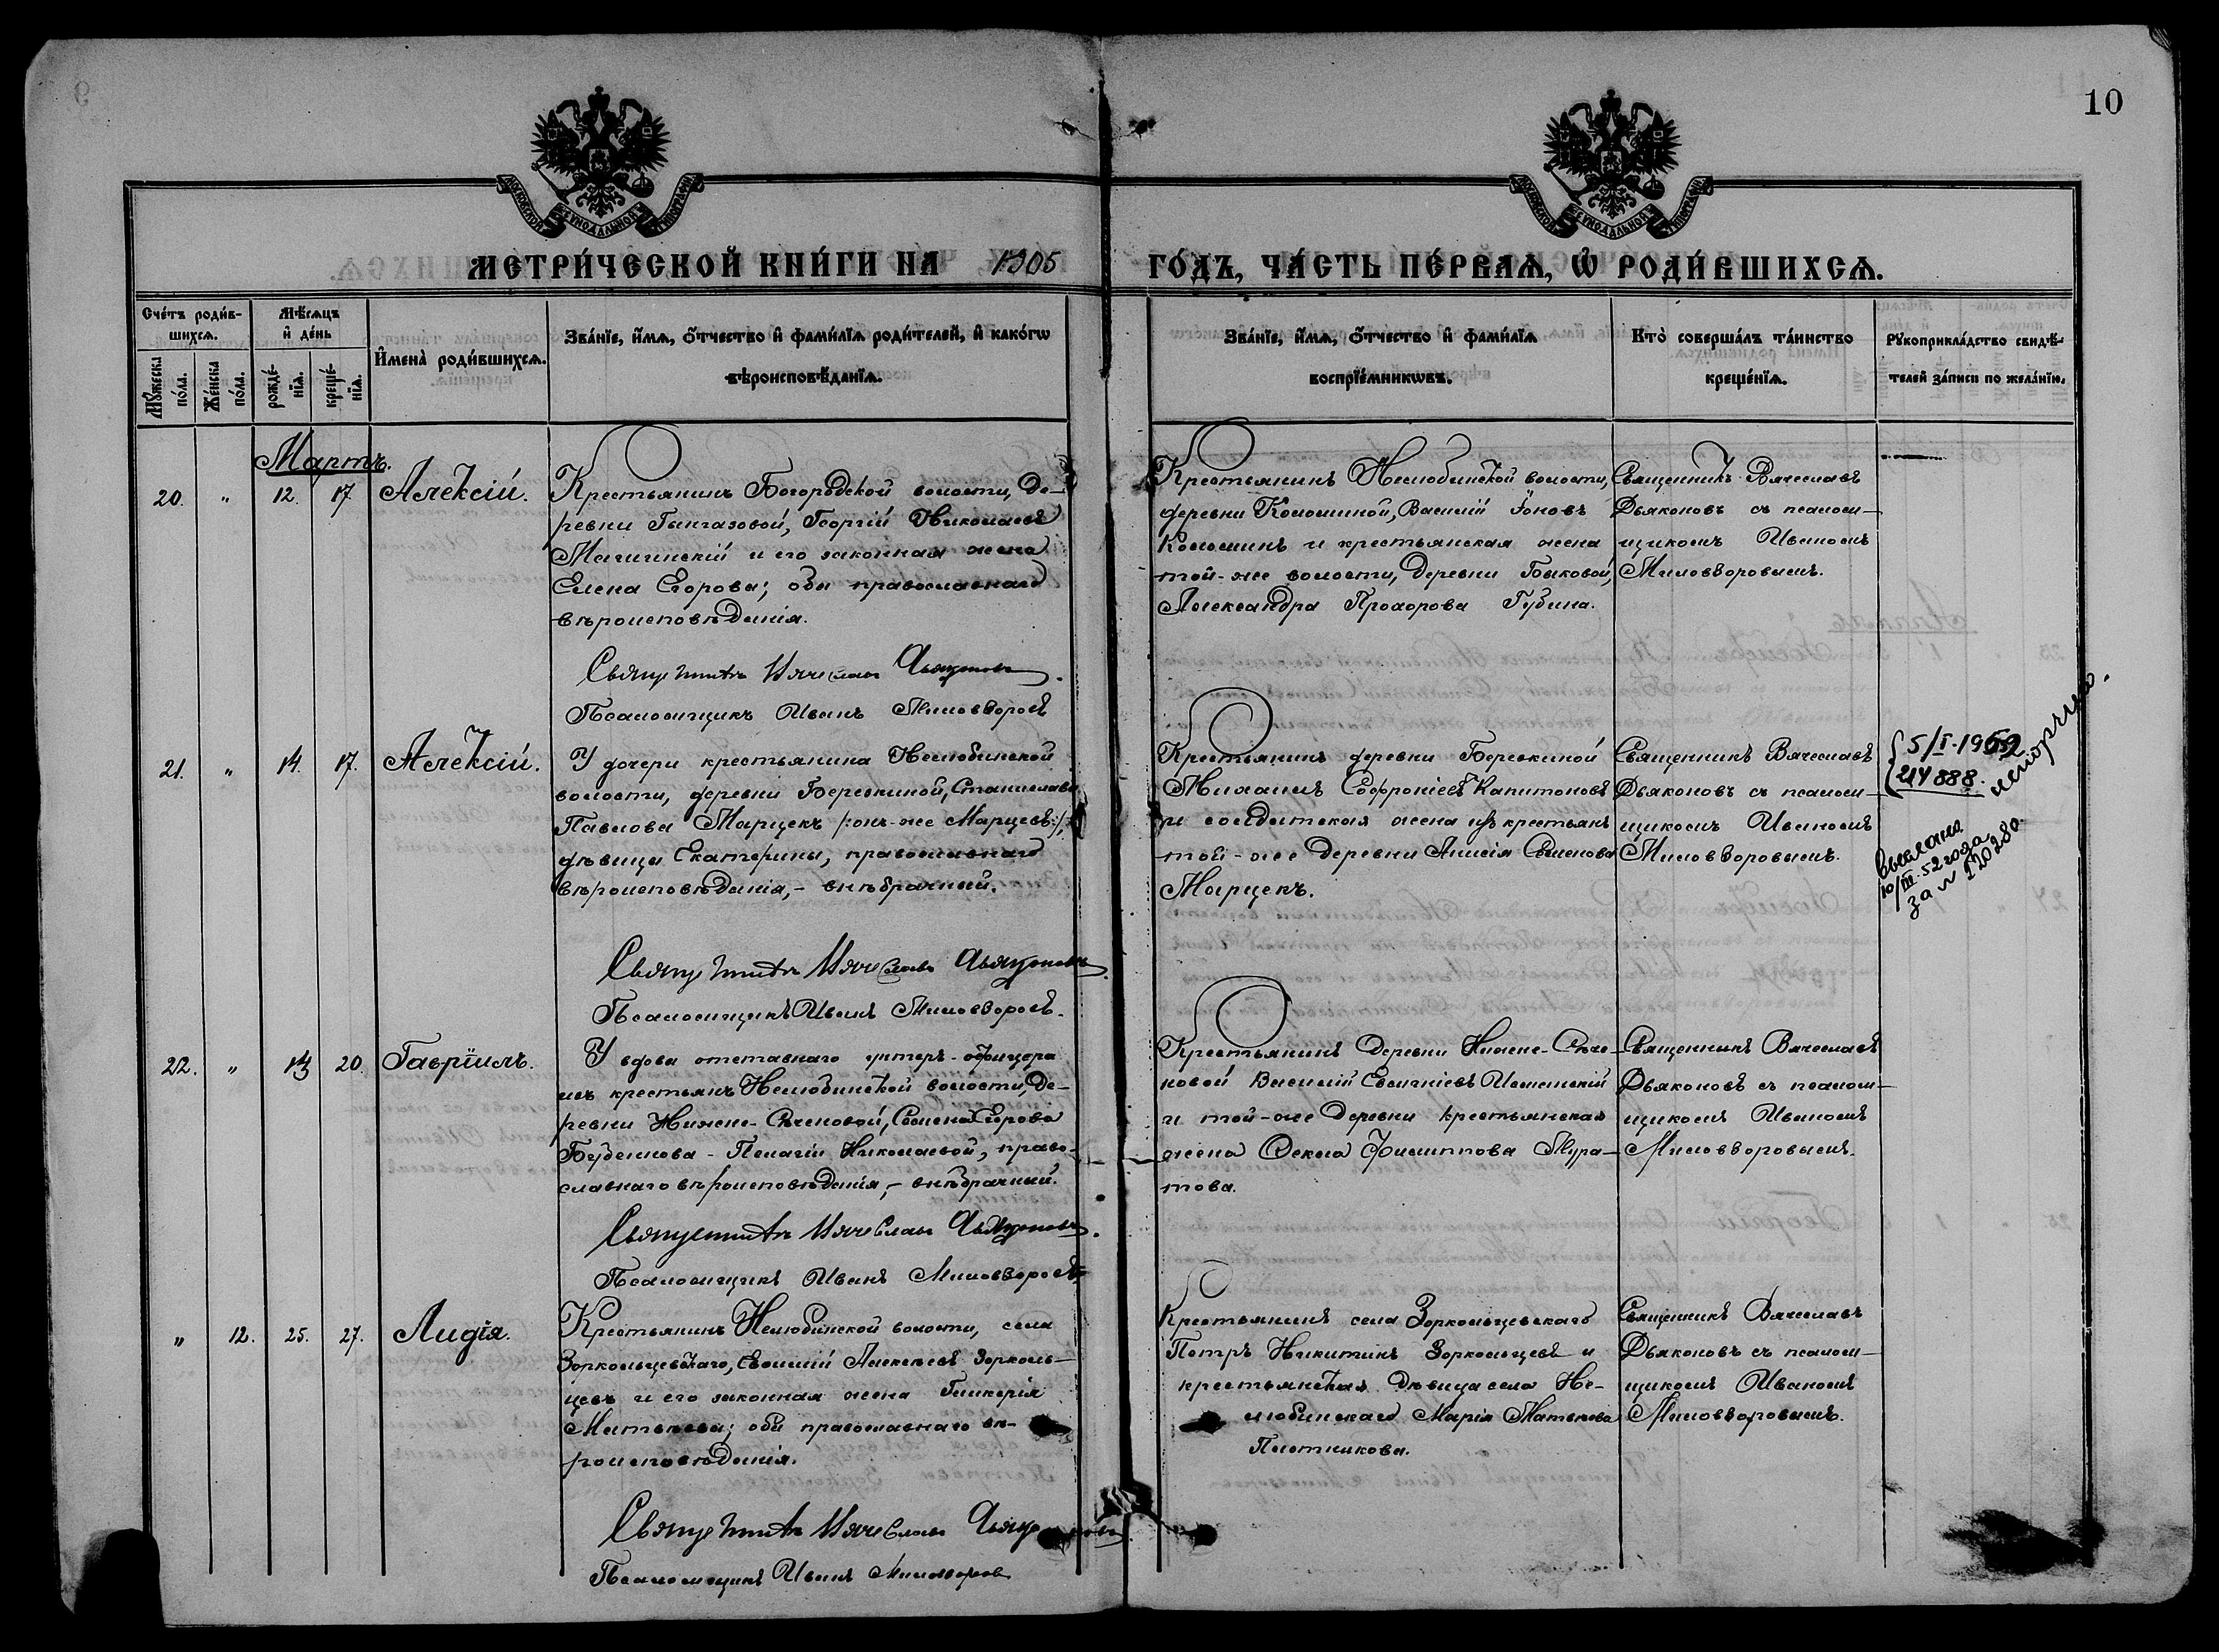 10
МЕТРИ́ЧЕСКОЙ КНИ́ГИ НА 1905 ГО́ДЪ, ЧА́СТЬ ПЕ́РВАѦ, Ѡ҆ РОДИ́ВШИХСѦ.
Сче́тъ роди́в-
шихсѧ.
Мꙋ́жеска по́ла.
Же́нска по́ла.
Мѣ́сѧцъ
и҆ де́нь
рожде́-нїѧ.
креще́-нїѧ.
И҆мена̀ роди́вшихсѧ.
Зва́нїе, и҆́мѧ, ѻ҆́тчество и҆ фами́лїѧ роди́телей, и҆ како́гѡ
вѣроисповѣ́данїѧ.
Зва́нїе, и҆́мѧ, ѻ҆́тчество и҆ фами́лїѧ
воспрїе́мникѡвъ.
Кто̀ соверша́лъ та́инство
креще́нїѧ.
Рꙋкоприкла́дство свидѣ́-
телей за́писи по жела́нїю.
Мартъ.
20. " 12. 17. Алексій.
Крестьянинъ Богородской волости, де-
ревни Георгій Николаевъ
и его законная жена
Елена Егорова; оба православнаго
вѣроисповѣданія.
Священникъ Вячеславъ Дьяконовъ.
Псаломщикъ Иванъ Миловзоровъ
Крестьянинъ Нелюбинской волости,
деревни Коломиной, Василій Іоновъ
Коломинъ и крестьянская жена
той-же волости, деревни Быковой,
Александра Прохорова Губина.
Священникъ Вячеславъ
Дьяконовъ съ псалом-
щикомъ Иваномъ
Миловзоровымъ.
21. " 14. 17. Алексій.
У дочери крестьянина Нелюбинской
волости, деревни Березкиной, Станислава
Павлова Марцекъ /:онъ-же Марцевъ:/,
дѣвицы Екатерины, православнаго
вѣроисповѣданія, – внѣбрачный.
Священникъ Вячеславъ Дьяконовъ.
Псаломщикъ Иванъ Миловзоровъ.
Крестьянинъ деревни Березкиной
Михаилъ Софроніевъ Капитоновъ
и солдатская жена изъ крестьянъ
той-же деревни Анисія Семенова
Марцекъ.
Священникъ Вячеславъ
Дьяконовъ съ псалом-
щикомъ Иваномъ
Миловзоровымъ.
5/I-1952
214888.
выслано
10/III-52 года
за № 12028о.
22. " 14 20. Гавріилъ.
У вдовы отставнаго унтеръ-офицера
изъ крестьянъ Нелюбинской волости, де-
ревни Нижне-Сѣченовой, Семена Егорова
Буденнова - Пелагіи Николаевой, право-
славнаго вѣроисповѣданія, – внѣбрачный.
Священникъ Вячеславъ Дьяконовъ.
Псаломщикъ Иванъ Миловзоровъ.
Крестьянинъ деревни Нижне-Сѣче-
новой Василій Евгеніевъ
и той-же деревни крестьянская
жена Фекла Филиппова Мура-
това.
Священникъ Вячеславъ
Дьяконовъ съ псалом-
щикомъ Иваномъ
Миловзоровымъ.
" 12. 25. 27. Лидія.
Крестьянинъ Нелюбинской волости, села
Зоркольцевскаго, Алексѣевъ Зорколь-
цевъ и его законная жена Гликерія
Матвѣева; оба православнаго вѣ-
роисповѣданія.
Священникъ Вячеславъ Дьяконовъ.
Псаломщикъ Иванъ Миловзоровъ
Крестьянинъ села Зоркольцевскаго
Петръ Никитинъ Зоркольцевъ и
крестьянская дѣвица села Не-
любинскаго Марія Матвѣева
Плотникова.
Священникъ Вячеславъ
Дьяконовъ съ псалом-
щикомъ Иваномъ
Миловзоровымъ.